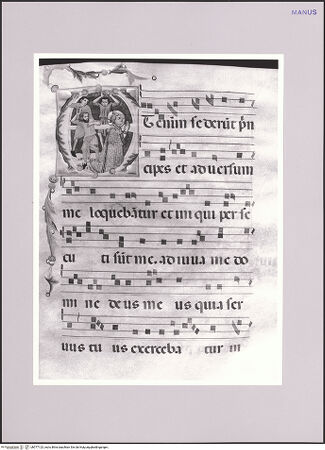 MANUS
T enim sederūt prī
cipes et adversum
me loquebātur et imi qui perse
cu ti sūt me. adiuua me do
mi ne deus me us quia ser
uus tu us exerceba tur in